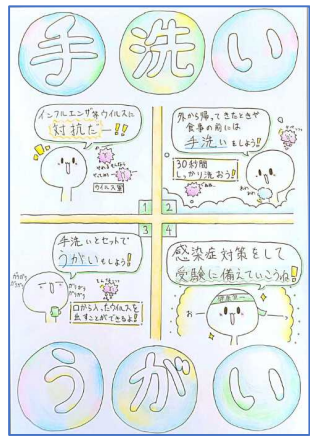 手洗い
インフルエンザやウイルスに
対抗だー!!
ウイルス軍
1
2
外から帰ってきたときや
食事の前には
手洗いをしよう!
30秒間
しっかり洗おう!
3
4
手洗いとセットで
うがいもしよう!
ガラガラ
ガラガラ
ガラガラ
ガラガラ
口から入ったウイルスを
出すことができるよ!
感染症対策をして
受験に備えていこうね!
おー
うがい